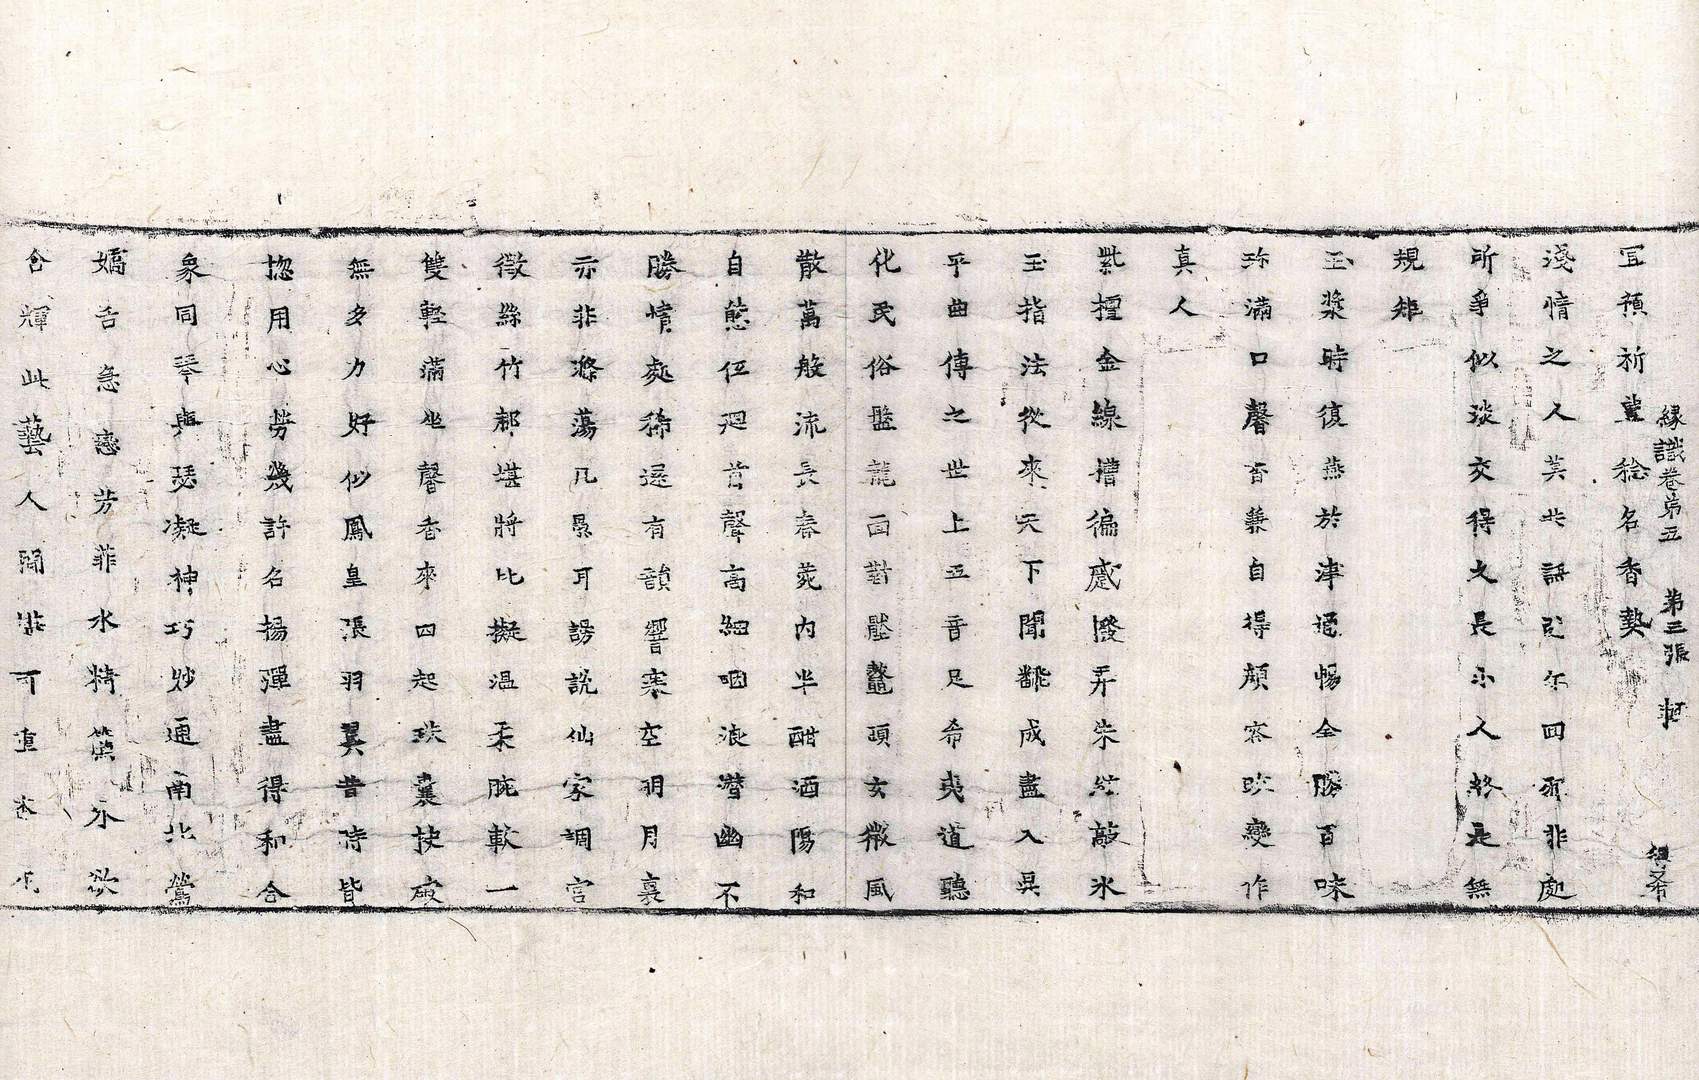 緣識卷第五 第三張 
冝預祈豊稔名香爇
淺情之人莫出語 回 非處
所爭似淡交得久長小人終是無
規矩
玉漿時復燕於津通暢全勝百味
珎滿口馨香兼自得顔容 變作
真人
紫檀金線槽徧慼撥弄朱絃敲氷
玉指法從來天下聞翻成盡入吳
乎曲傳之世上五音足希夷道聽
化民俗盤龍面對 鼇頭女微風
散萬般流長春苑内半酣洒陽和
自態伍迴首聲高細咽浪潜幽不
勝憤處稀還有韻響寒空明月裏
亦非滌蕩凡愚耳謗說仙家調宫
徵絲竹都堪將比擬温柔腕軟一
雙輕滿坐馨香來四起珠囊抰碎
無多力好似鳳皇張羽翼昔時皆
惚用心勞幾許名揚彈盡得和合
象同琴與瑟凝神巧妙通南北鶯
嬌舌急 芳菲水精簾 欲
含輝此藝人間 可重